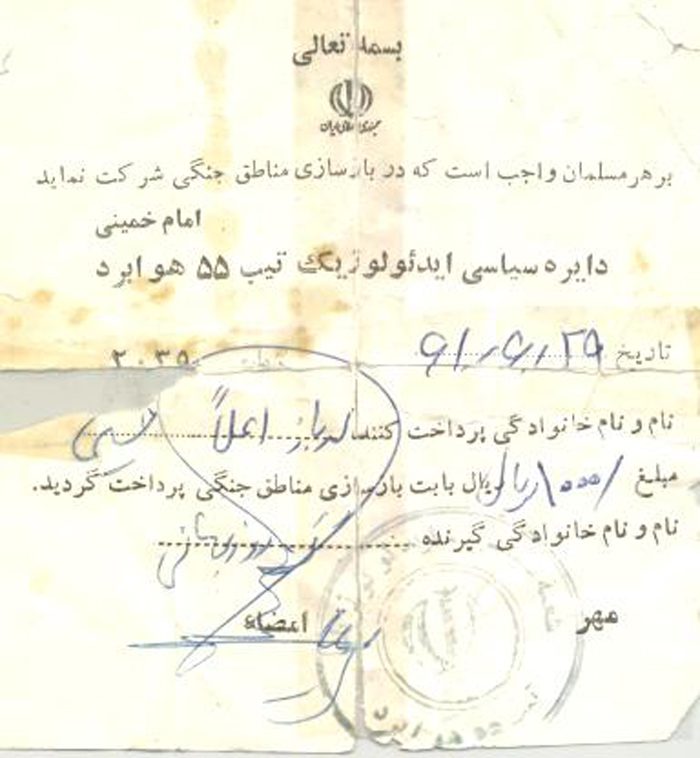 بسمه تعالی
جمهوری اسلامی ایران
بر هر مسلمان واجب است که در بازسازی مناطق جنگی شرکت نماید
امام خمینی
دایره سیاسی ایدئولوژیک تیپ ۵۵ هوابرد
تاریخ
۲۰۳۵
نام و نام خانوادگی پرداخت کننده
مبلغ /۱۰۰۰ ریال ریال بابت بازسازی مناطق جنگی پرداخت گردید.
نام و نام خانوادگی گیرنده
مهر امضاء